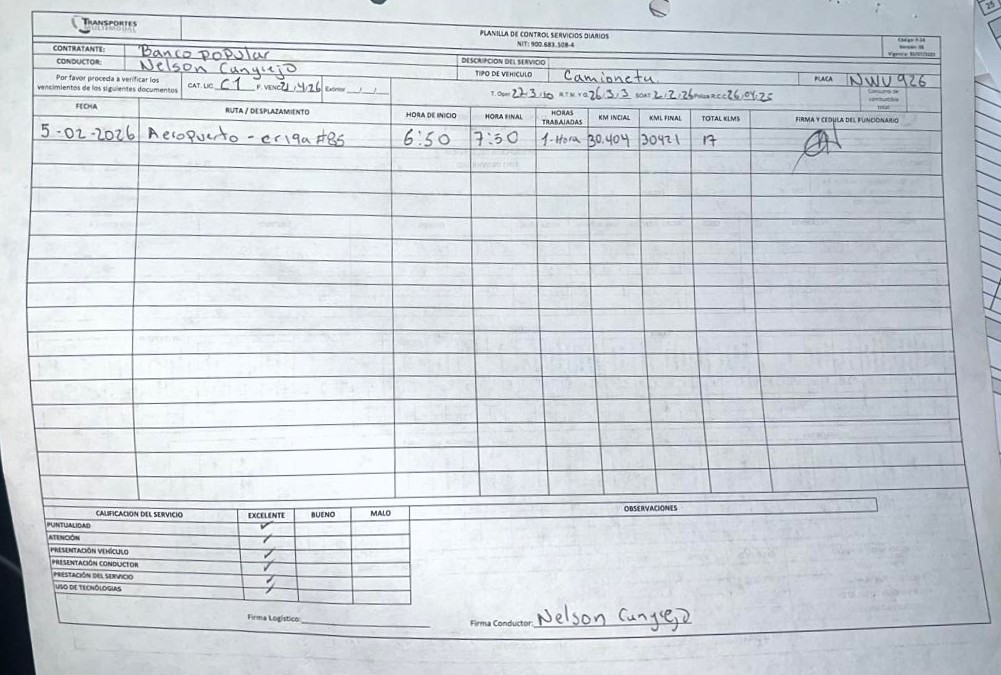 TRANSPORTES
MULTIMODAL
PLANILLA DE CONTROL SERVICIOS DIARIOS
NIT: 900.683.508-4
CONTRATANTE: Banco popular
CONDUCTOR: Nelson Cangrejo
DESCRIPCION DEL SERVICIO
TIPO DE VEHICULO Camioneta PLACA NWU 926
Por favor proceda a verificar los
vencimientos de los siguientes documentos
CAT. LIC. C1 F. VENC 21/4/26 Extintor / /
T. Oper 27.3.30 R.T.M. 26.3.3 SOAT 2.2.26 Poliza RCC 26.04.25
Consumo de
combustible
total
FECHA RUTA / DESPLAZAMIENTO HORA DE INICIO HORA FINAL HORAS TRABAJADAS KM INCIAL KML FINAL TOTAL KLMS FIRMA Y CEDULA DEL FUNCIONARIO
5-02-2026 Aeropuerto - cr19a #85 6:50 7:50 1-Hora 30.404 30421 17
CALIFICACION DEL SERVICIO EXCELENTE BUENO MALO OBSERVACIONES
PUNTUALIDAD ✓
ATENCIÓN ✓
PRESENTACIÓN VEHÍCULO ✓
PRESENTACIÓN CONDUCTOR ✓
PRESTACIÓN DEL SERVICIO ✓
USO DE TECNOLOGIAS ✓
Firma Logístico: Firma Conductor: Nelson Cangrejo